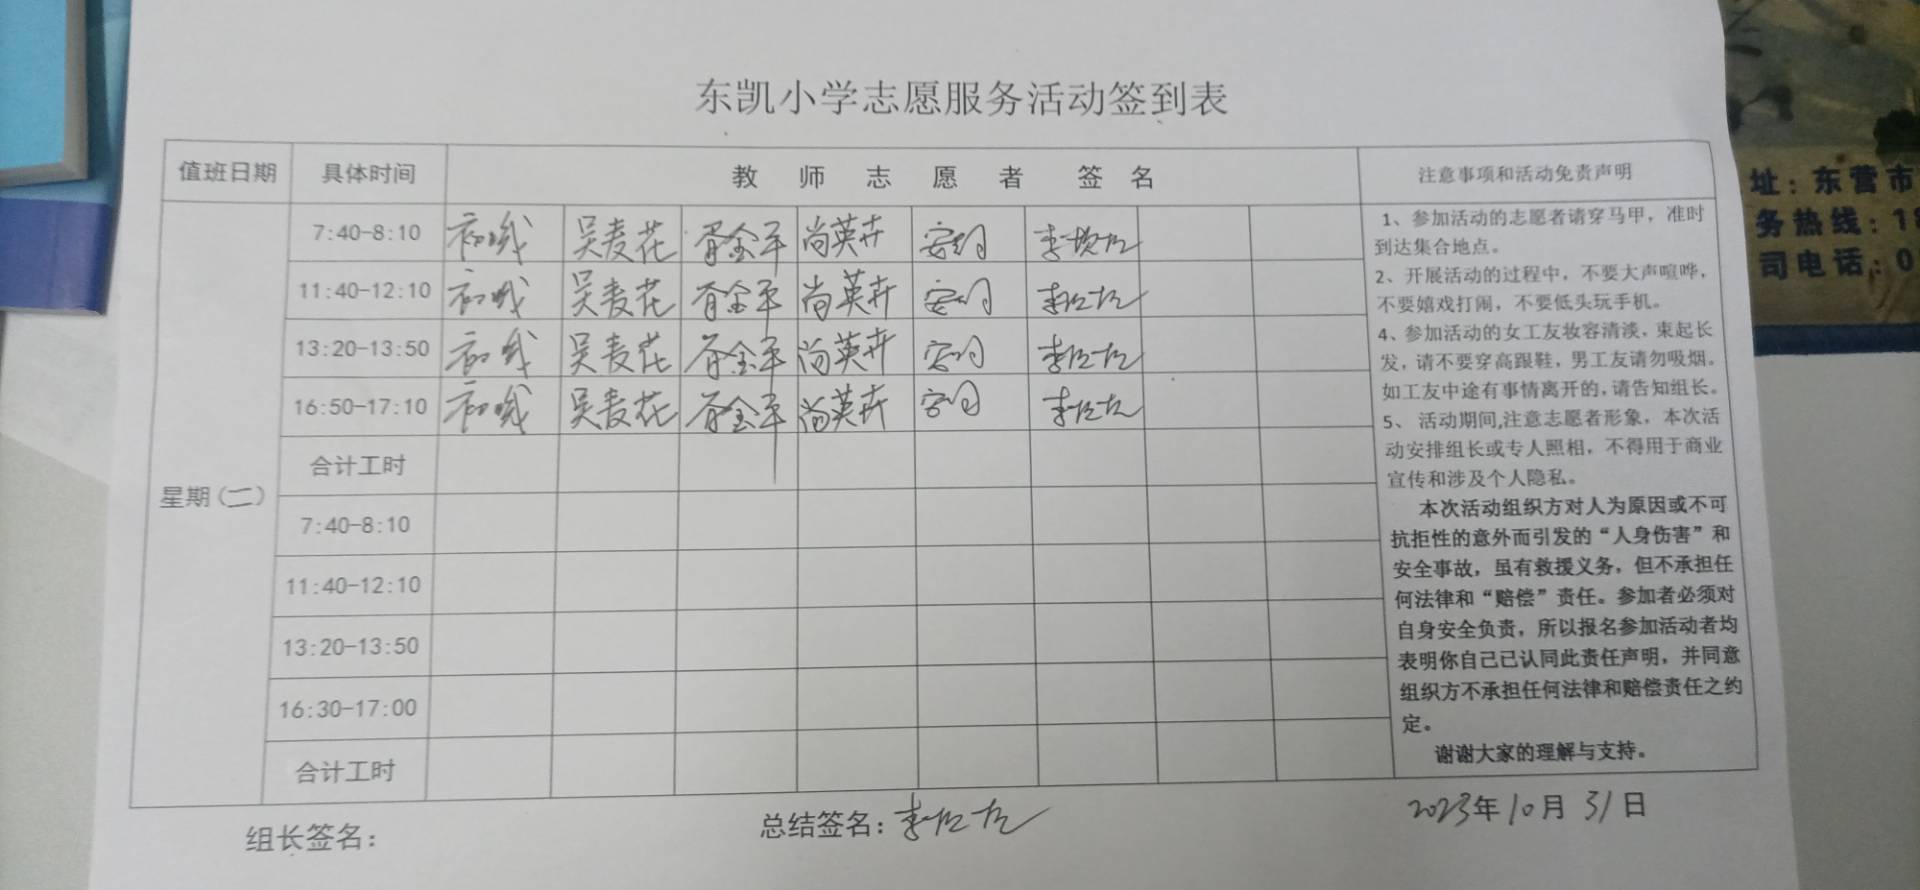 东凯小学志愿服务活动签到表
值班日期 具体时间 教师志愿者签名 注意事项和活动免责声明
星期(二)
7:40-8:10 吴麦花 尚英卉
11:40-12:10 吴麦花 尚英卉
13:20-13:50 吴麦花 尚英卉
16:50-17:10 吴麦花 尚英卉
合计工时
7:40-8:10
11:40-12:10
13:20-13:50
16:30-17:00
合计工时
1、参加活动的志愿者请穿马甲，准时
到达集合地点。
2、开展活动的过程中，不要大声喧哗，
不要嬉戏打闹，不要低头玩手机。
4、参加活动的女工友妆容清淡，束起长
发，请不要穿高跟鞋，男工友请勿吸烟。
如工友中途有事情离开的，请告知组长。
5、 活动期间,注意志愿者形象，本次活
动安排组长或专人照相，不得用于商业
宣传和涉及个人隐私。
本次活动组织方对人为原因或不可
抗拒性的意外而引发的“人身伤害”和
安全事故，虽有救援义务，但不承担任
何法律和“赔偿”责任。参加者必须对
自身安全负责，所以报名参加活动者均
表明你自己已认同此责任声明，并同意
组织方不承担任何法律和赔偿责任之约
定。
谢谢大家的理解与支持。
组长签名：
总结签名：
2023年10月31日
址：东营市
务热线：18
司电话：0